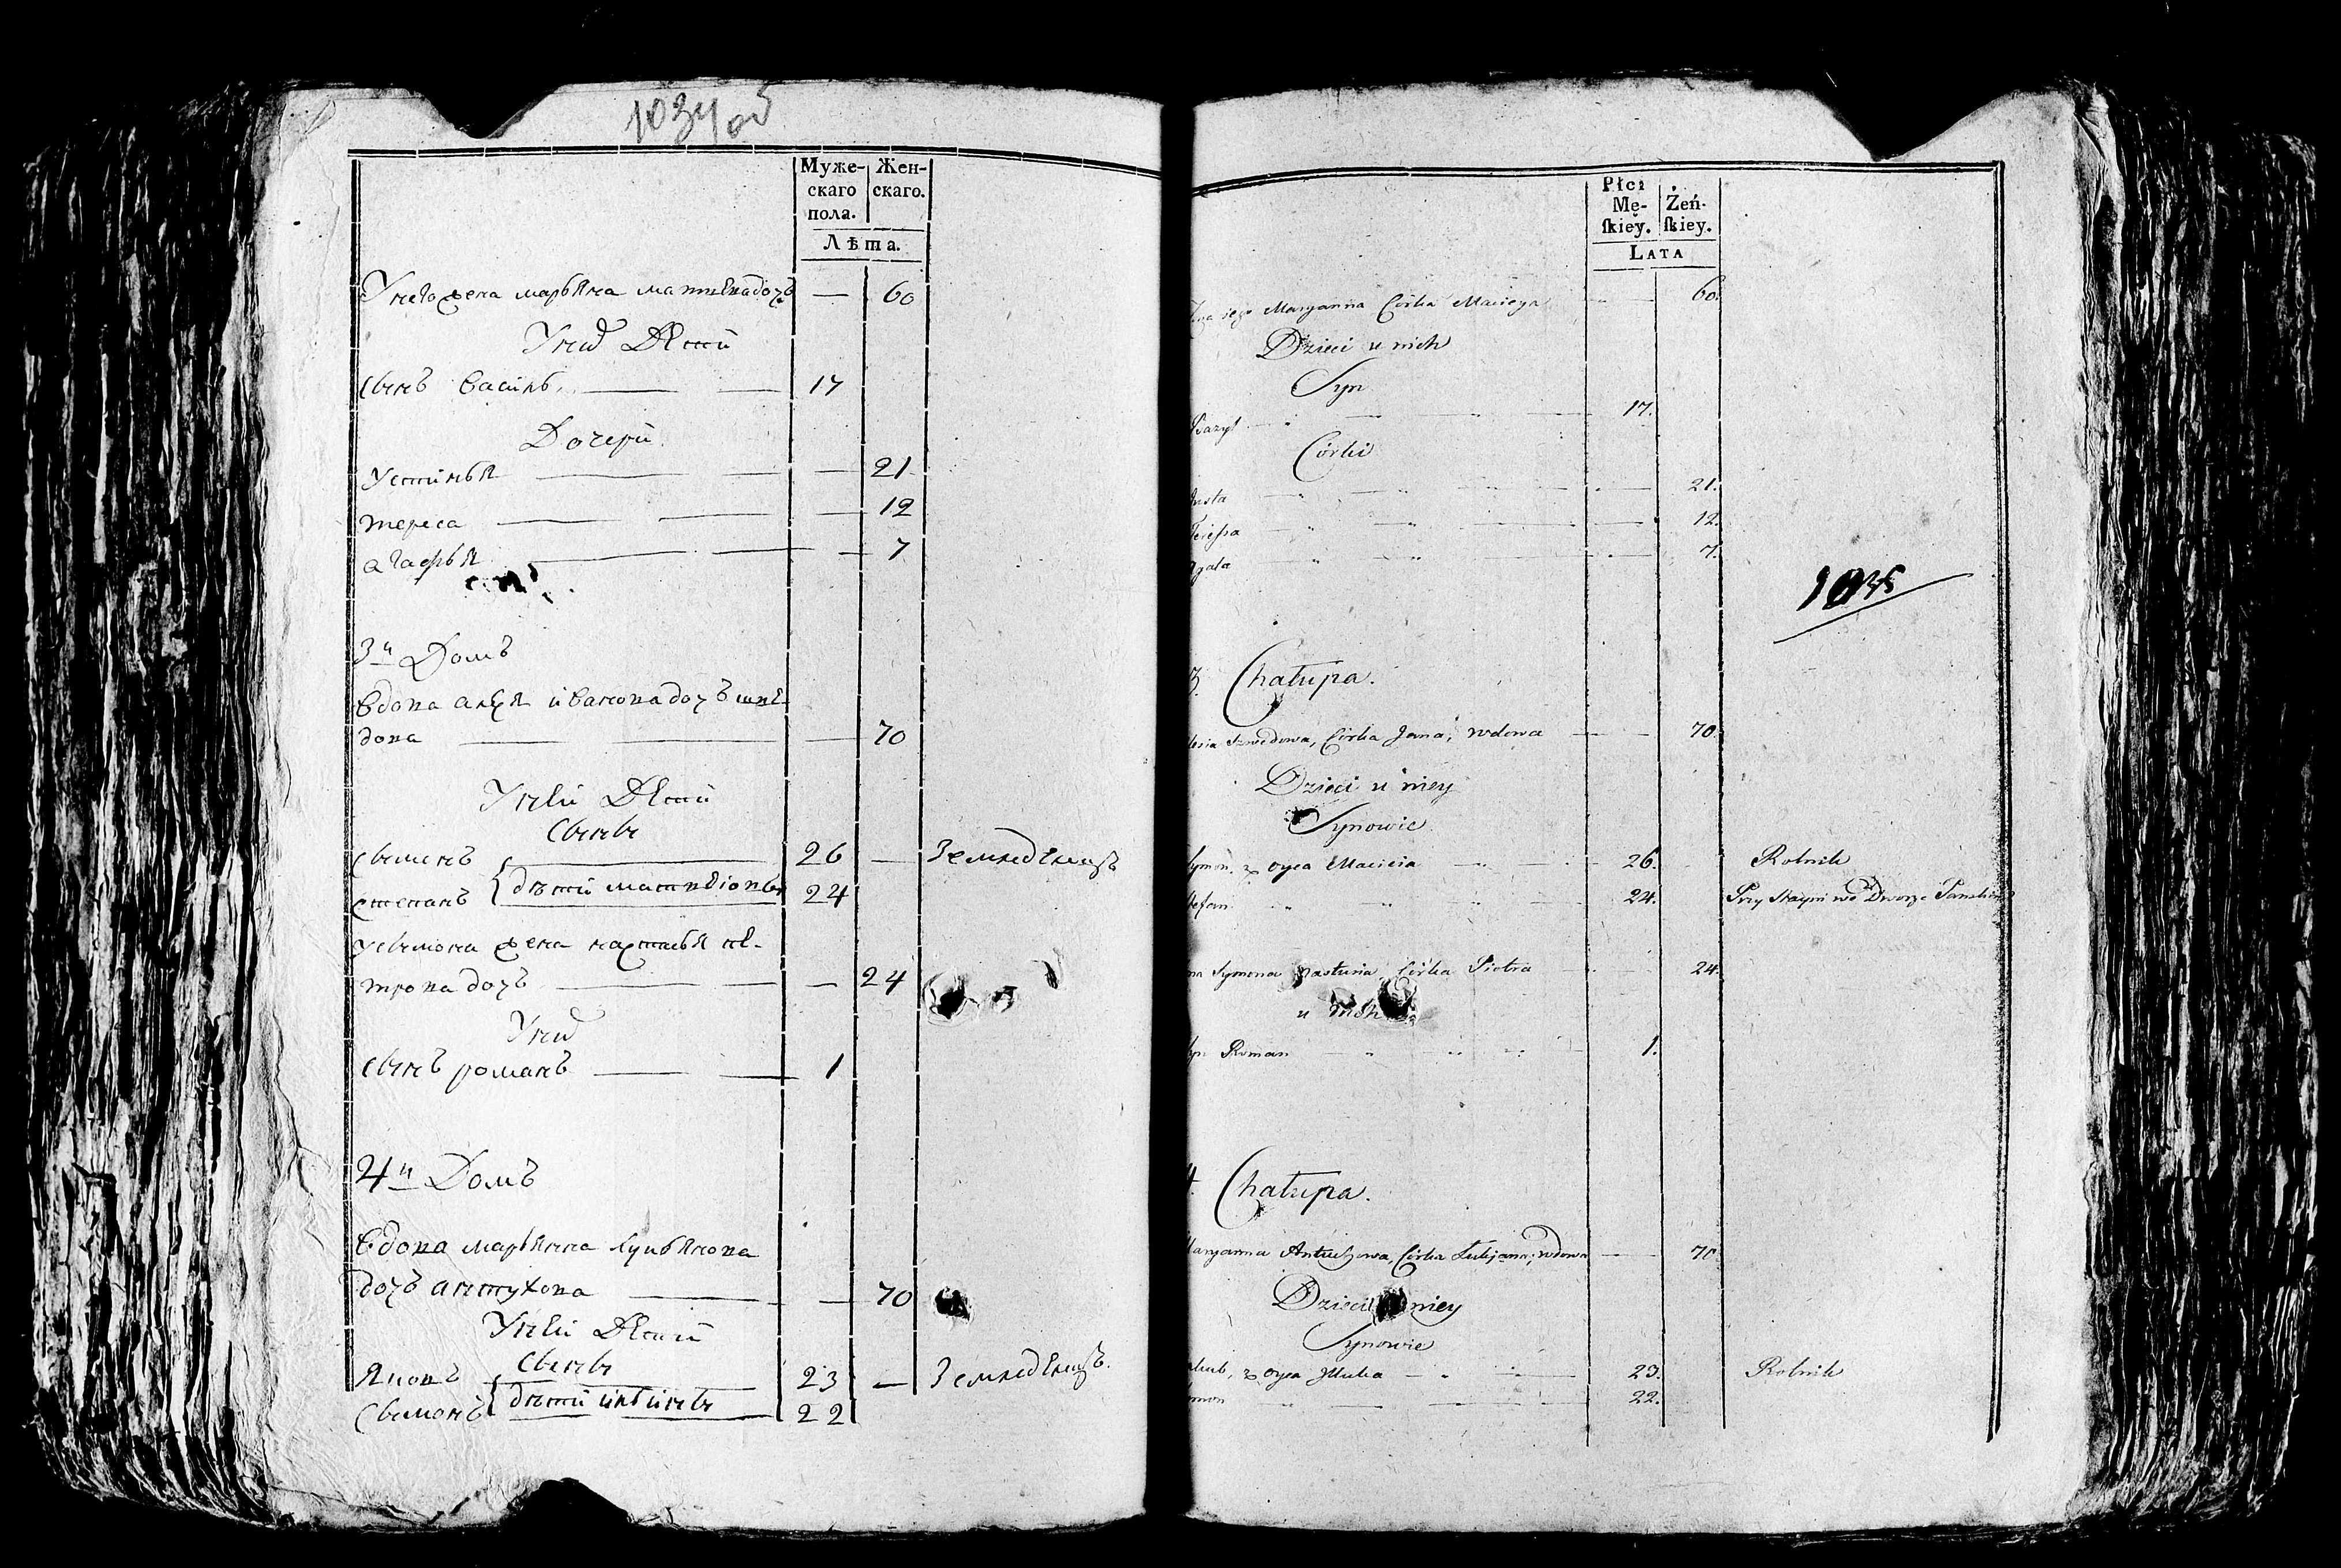 1034 об
Муже- Жен-
скаго скаго.
пола.
Лѣта.
У него жена марьяна матвѣева дочь — 60
У них Дѣти
Сынъ Василь 17
Дочери
Устинья — 21
тереса — 12
агафья — 7
3й Домъ
Вдова алѣся иванова дочь швѣ-
дова — 70
У ней Дѣти
Сыны
Сымонъ 26 — Земледѣлецъ
Степанъ дѣти матвѣјовы 24
у сымона жена настасья пѣ-
трова дочь — 24
У них
Сынъ романъ 1
4й Домъ
Вдова марьянна лукьянова
дочь антухова — 70
У ней Дѣти
Сыны
Яковъ 23 — Земледѣлецъ.
Сымонъ дѣти ильины 22
Płci
Mę- Żeń-
ſkiey. ſkiey.
LATA
Żona iego Maryanna Córka Macieya 60.
Dzieci u nich
Syn
Bazyl 17.
Córki
Justa 21.
Teressa 12.
Agata 7.
1035
3. Chałupa.
Szwedowa, Córka Jana, wdowa 70.
Dzieci u niey
Synowie
Symon, z oyca Macieia 26. Rolnik
Stefan 24. Przy Stayni we Dworze
Symona Nastazia, Córka Piotra 24.
u nich
Syn Roman 1.
4. Chałupa.
Maryanna Antuchowa, Córka Łukjana, wdowa 70
Dzieci u niey
Synowie
Jakub, z oyca Jlluka 23. Rolnik
Symon 22.